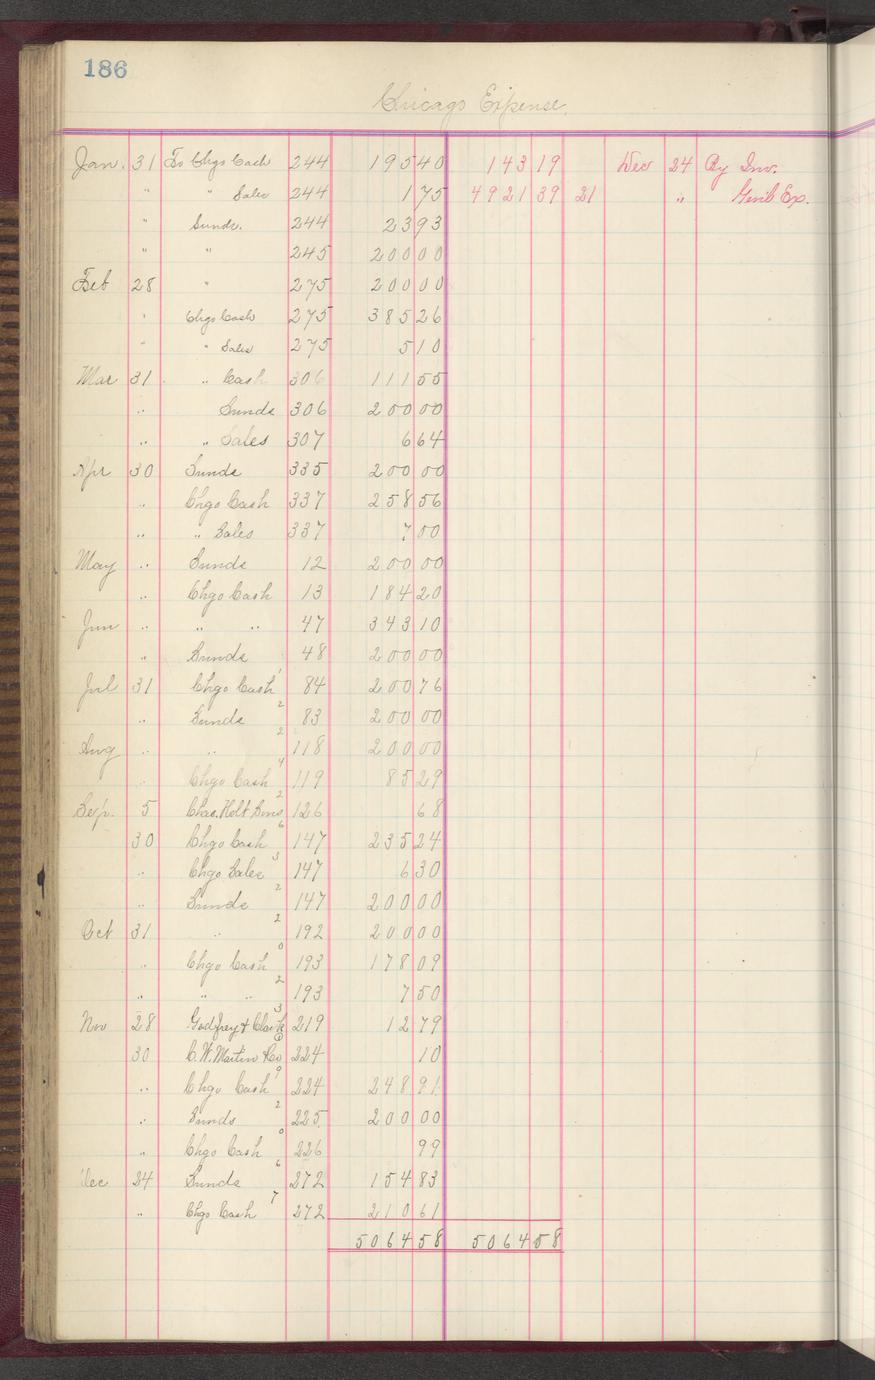 186
Chicago Expense.
Jan. 31 To Chgo Cash 244 195 40 143 19 Dec 24 By Inv.
" " Sales 244 1 75 4921 39 21 " Genl Ex.
" Sunds. 244 23 93
" " 245 200 00
Feb 28 " 275 200 00
" Chgo Cash 275 385 26
" " Sales 275 5 10
Mar 31 " Cash 306 111 55
" Sunds 306 200 00
" " Sales 307 6 64
Apr 30 Sunds 335 200 00
" Chgo Cash 337 258 56
" " Sales 337 7 00
May " Sunds 12 200 00
" Chgo Cash 13 184 20
Jun " " " 47 343 10
" Sunds 48 200 00
Jul 31 Chgo Cash 1 84 200 76
" Sunds 2 83 200 00
Aug " " 2 118 200 00
" Chgo Cash 4 119 85 29
Sep. 5 Chas. Holt Sons 2 126 68
30 Chgo Cash 6 147 235 24
" Chgo Sales 3 147 6 30
" Sunds 2 147 200 00
Oct 31 " 2 192 200 00
" Chgo Cash 0 193 178 09
" " " 2 193 7 50
Nov 28 Godfrey & Clark 3 219 12 79
30 C. W. Martin & Co 224 10
" Chgo Cash 9 224 248 91
" Sunds 2 225 200 00
" Chgo Cash 0 226 99
Dec 24 Sunds 6 272 154 83
" Chgo Cash 7 272 210 61
5064 58 5064 58